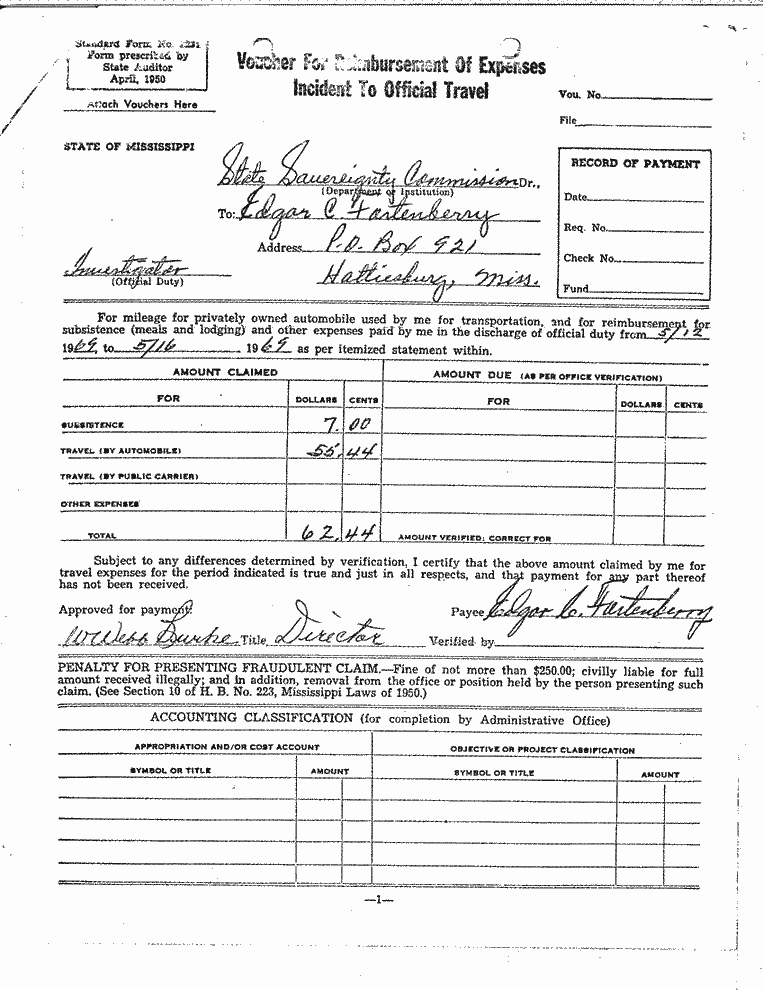 Standard Form No. 2231
Form prescribed by
State Auditor
April, 1950
Attach Vouchers Here
Voucher For Reimbursement Of Expenses
Incident To Official Travel
Vou. No.
File
STATE OF MISSISSIPPI
State Sauereignty Commission Dr.,
(Department or Institution)
To: Edgar C. Fortenberry
Address P.O. Box 921
Hattiesburg, Miss.
Investigator
(Official Duty)
RECORD OF PAYMENT
Date
Req. No.
Check No.
Fund
For mileage for privately owned automobile used by me for transportation, and for reimbursement for
subsistence (meals and lodging) and other expenses paid by me in the discharge of official duty from 5/12
1969, to 5/16, 1969 as per itemized statement within.
AMOUNT CLAIMED
AMOUNT DUE (AS PER OFFICE VERIFICATION)
FOR DOLLARS CENTS FOR DOLLARS CENTS
SUBSISTENCE 7.00
TRAVEL (BY AUTOMOBILE) 55.44
TRAVEL (BY PUBLIC CARRIER)
OTHER EXPENSES
TOTAL 62.44 AMOUNT VERIFIED; CORRECT FOR
Subject to any differences determined by verification, I certify that the above amount claimed by me for
travel expenses for the period indicated is true and just in all respects, and that payment for any part thereof
has not been received.
Approved for payment: Payee Edgar C. Fortenberry
W Webb Burke Title Director Verified by
PENALTY FOR PRESENTING FRAUDULENT CLAIM.—Fine of not more than $250.00; civilly liable for full
amount received illegally; and in addition, removal from the office or position held by the person presenting such
claim. (See Section 10 of H. B. No. 223, Mississippi Laws of 1950.)
ACCOUNTING CLASSIFICATION (for completion by Administrative Office)
APPROPRIATION AND/OR COST ACCOUNT OBJECTIVE OR PROJECT CLASSIFICATION
SYMBOL OR TITLE AMOUNT SYMBOL OR TITLE AMOUNT
—1—